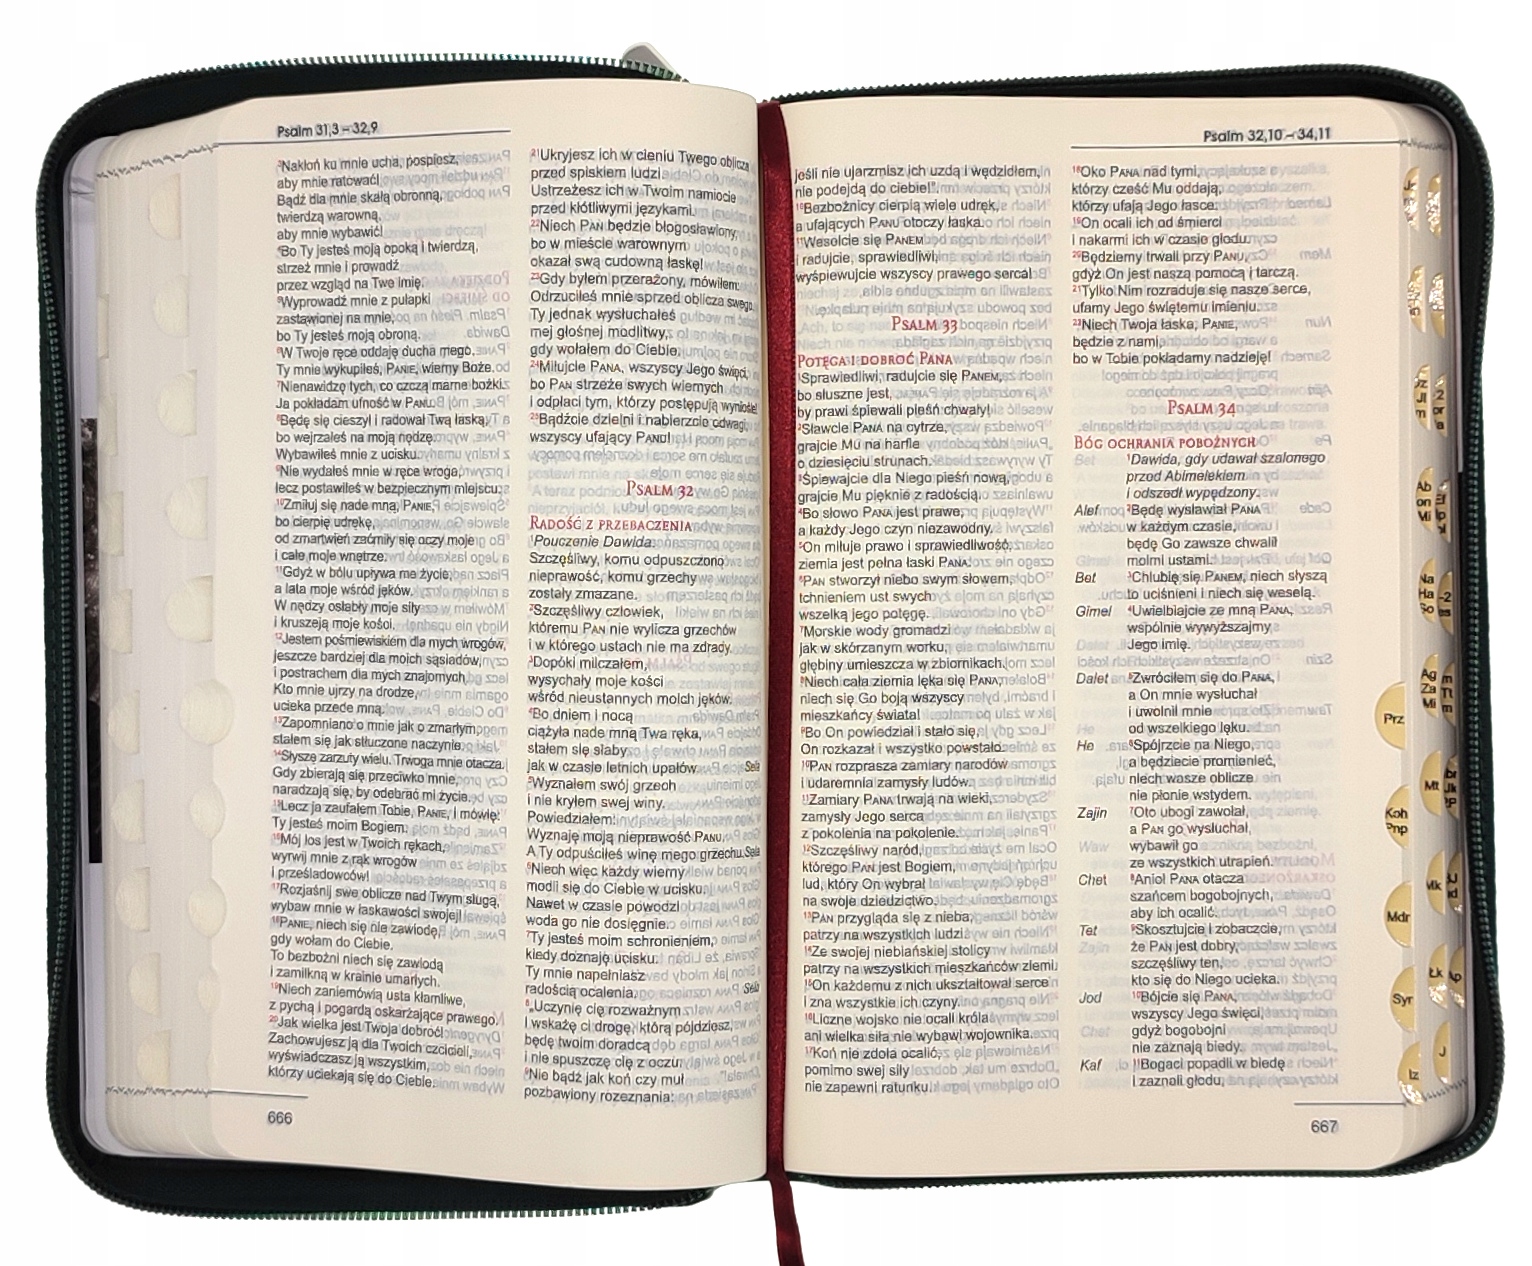 Psalm 31,3 – 32,9
³Nakłoń ku mnie ucha, pospiesz,
aby mnie ratować!
Bądź dla mnie skałą obronną,
twierdzą warowną,
aby mnie wybawić!
⁴Bo Ty jesteś moją opoką i twierdzą,
strzeż mnie i prowadź
przez wzgląd na Twe imię.
⁵Wyprowadź mnie z pułapki
zastawionej na mnie,
bo Ty jesteś moją obroną.
⁶W Twoje ręce oddaję ducha mego.
Ty mnie wykupiłeś, PANIE, wierny Boże.
⁷Nienawidzę tych, co czczą marne bożki.
Ja pokładam ufność w PANU.
⁸Będę się cieszył i radował Twą łaską,
bo wejrzałeś na moją nędzę.
Wybawiłeś mnie z ucisku.
⁹Nie wydałeś mnie w ręce wroga,
lecz postawiłeś w bezpiecznym miejscu.
¹⁰Zmiłuj się nade mną, PANIE,
bo cierpię udrękę,
od zmartwień zaćmiły się oczy moje
i całe moje wnętrze.
¹¹Gdyż w bólu upływa me życie,
a lata moje wśród jęków.
W nędzy osłabły moje siły
i kruszeją moje kości.
¹²Jestem pośmiewiskiem dla mych wrogów,
jeszcze bardziej dla moich sąsiadów,
i postrachem dla mych znajomych,
Kto mnie ujrzy na drodze,
ucieka przede mną.
¹³Zapomniano o mnie jak o zmarłym,
stałem się jak stłuczone naczynie.
¹⁴Słyszę zarzuty wielu. Trwoga mnie otacza.
Gdy zbierają się przeciwko mnie,
naradzają się, by odebrać mi życie.
¹⁵Lecz ja zaufałem Tobie, PANIE, i mówię:
Ty jesteś moim Bogiem.
¹⁶Mój los jest w Twoich rękach,
wyrwij mnie z rąk wrogów
i prześladowców!
¹⁷Rozjaśnij swe oblicze nad Twym sługą,
wybaw mnie w łaskawości swojej!
¹⁸PANIE, niech się nie zawiodę,
gdy wołam do Ciebie.
To bezbożni niech się zawiodą
i zamilkną w krainie umarłych.
¹⁹Niech zaniemówią usta kłamliwe,
z pychą i pogardą oskarżające prawego.
²⁰Jak wielka jest Twoja dobroć!
Zachowujesz ją dla Twoich czcicieli,
wyświadczasz ją wszystkim,
którzy uciekają się do Ciebie.
666
²¹Ukryjesz ich w cieniu Twego oblicza
przed spiskiem ludzi.
Ustrzeżesz ich w Twoim namiocie
przed kłótliwymi językami.
²²Niech PAN będzie błogosławiony,
bo w mieście warownym
okazał swą cudowną łaskę!
²³Gdy byłem przerażony, mówiłem:
Odrzuciłeś mnie sprzed oblicza swego.
Ty jednak wysłuchałeś
mej głośnej modlitwy,
gdy wołałem do Ciebie.
²⁴Miłujcie PANA, wszyscy Jego święci,
bo PAN strzeże swych wiernych
i odpłaci tym, którzy postępują wyniośle!
²⁵Bądźcie dzielni i nabierzcie odwagi,
wszyscy ufający PANU!
PSALM 32
RADOŚĆ Z PRZEBACZENIA
¹Pouczenie Dawida.
Szczęśliwy, komu odpuszczono
nieprawość, komu grzechy
zostały zmazane.
²Szczęśliwy człowiek,
któremu PAN nie wylicza grzechów
i w którego ustach nie ma zdrady.
³Dopóki milczałem,
wysychały moje kości
wśród nieustannych moich jęków.
⁴Bo dniem i nocą
ciążyła nade mną Twa ręka,
stałem się słaby
jak w czasie letnich upałów. Sela
⁵Wyznałem swój grzech
i nie kryłem swej winy.
Powiedziałem:
Wyznaję moją nieprawość PANU.
A Ty odpuściłeś winę mego grzechu. Sela
⁶Niech więc każdy wierny
modli się do Ciebie w ucisku.
Nawet w czasie powodzi
woda go nie dosięgnie.
⁷Ty jesteś moim schronieniem,
kiedy doznaję ucisku.
Ty mnie napełniasz
radością ocalenia. Sela
⁸„Uczynię cię rozważnym
i wskażę ci drogę, którą pójdziesz,
będę twoim doradcą
i nie spuszczę cię z oczu.
⁹Nie bądź jak koń czy muł
pozbawiony rozeznania:
Psalm 32,10 – 34,11
jeśli nie ujarzmisz ich uzdą i wędzidłem,
nie podejdą do ciebie!”.
¹⁰Bezbożnicy cierpią wiele udręk,
a ufających PANU otoczy łaska.
¹¹Weselcie się PANEM
i radujcie, sprawiedliwi,
wyśpiewujcie wszyscy prawego serca!
PSALM 33
POTĘGA I DOBROĆ PANA
¹Sprawiedliwi, radujcie się PANEM,
bo słuszne jest,
by prawi śpiewali pieśń chwały!
²Sławcie PANA na cytrze,
grajcie Mu na harfie
o dziesięciu strunach.
³Śpiewajcie dla Niego pieśń nową,
grajcie Mu pięknie z radością.
⁴Bo słowo PANA jest prawe,
a każdy Jego czyn niezawodny.
⁵On miłuje prawo i sprawiedliwość,
ziemia jest pełna łaski PANA.
⁶PAN stworzył niebo swym słowem,
tchnieniem ust swych
wszelką jego potęgę.
⁷Morskie wody gromadzi
jak w skórzanym worku,
głębiny umieszcza w zbiornikach.
⁸Niech cała ziemia lęka się PANA,
niech się Go boją wszyscy
mieszkańcy świata!
⁹Bo On powiedział i stało się,
On rozkazał i wszystko powstało.
¹⁰PAN rozprasza zamiary narodów
i udaremnia zamysły ludów.
¹¹Zamiary PANA trwają na wieki,
zamysły Jego serca
z pokolenia na pokolenie.
¹²Szczęśliwy naród,
którego PAN jest Bogiem,
lud, który On wybrał
na swoje dziedzictwo.
¹³PAN przygląda się z nieba,
patrzy na wszystkich ludzi.
¹⁴Ze swojej niebiańskiej stolicy
patrzy na wszystkich mieszkańców ziemi.
¹⁵On każdemu z nich ukształtował serce
i zna wszystkie ich czyny.
¹⁶Liczne wojsko nie ocali króla
ani wielka siła nie wybawi wojownika.
¹⁷Koń nie zdoła ocalić,
pomimo swej siły
nie zapewni ratunku.
¹⁸Oko PANA nad tymi,
którzy cześć Mu oddają,
którzy ufają Jego łasce.
¹⁹On ocali ich od śmierci
i nakarmi ich w czasie głodu.
²⁰Będziemy trwali przy PANU,
gdyż On jest naszą pomocą i tarczą.
²¹Tylko Nim rozraduje się nasze serce,
ufamy Jego świętemu imieniu.
²²Niech Twoja łaska, PANIE,
będzie z nami,
bo w Tobie pokładamy nadzieję!
PSALM 34
BÓG OCHRANIA POBOŻNYCH
¹Dawida, gdy udawał szalonego
przed Abimelekiem
i odszedł wypędzony.
Alef ²Będę wysławiał PANA
w każdym czasie,
będę Go zawsze chwalił
moimi ustami.
Bet ³Chlubię się PANEM, niech słyszą
to uciśnieni i niech się weselą.
Gimel ⁴Uwielbiajcie ze mną PANA,
wspólnie wywyższajmy
Jego imię.
Dalet ⁵Zwróciłem się do PANA,
a On mnie wysłuchał
i uwolnił mnie
od wszelkiego lęku.
He ⁶Spójrzcie na Niego,
a będziecie promienieć,
niech wasze oblicze
nie płonie wstydem.
Zajin ⁷Oto ubogi zawołał,
a PAN go wysłuchał,
wybawił go
ze wszystkich utrapień.
Chet ⁸Anioł PANA otacza
szańcem bogobojnych,
aby ich ocalić.
Tet ⁹Skosztujcie i zobaczcie,
że PAN jest dobry,
szczęśliwy ten,
kto się do Niego ucieka.
Jod ¹⁰Bójcie się PANA,
wszyscy Jego święci,
gdyż bogobojni
nie zaznają biedy.
Kaf ¹¹Bogaci popadli w biedę
i zaznali głodu,
667
Prz
Koh
Pnp
Mdr
Syr
Iz
Ab
Mi
Na
Ha
So
Ag
Za
Mt
Mk
Łk
J